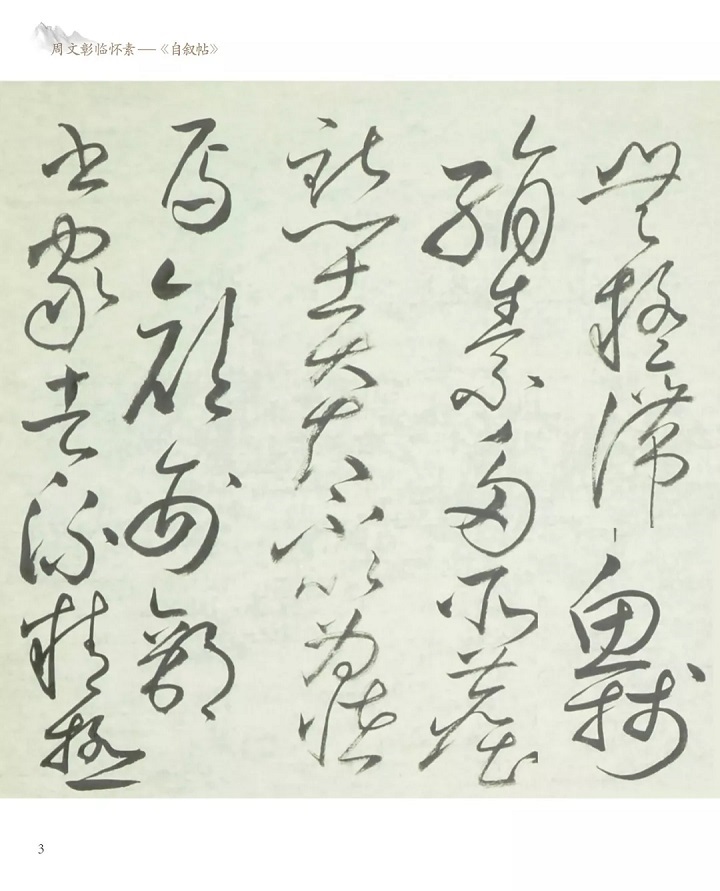 周文彰临怀素——《自叙帖》
無疑滯魚牋
絹素多所塵
點士大夫不以為怪
焉顏刑部
書家者流精極
3